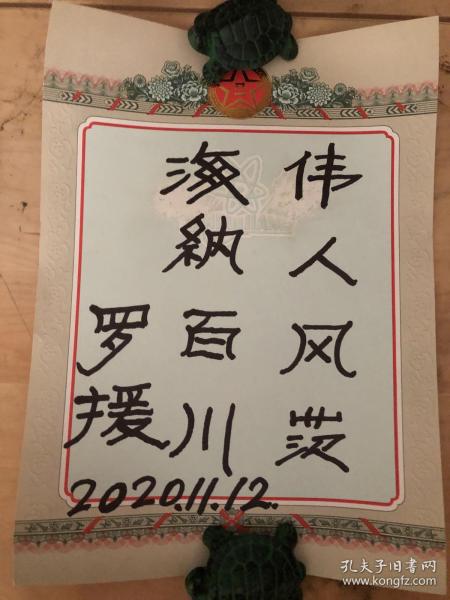 伟人风范
海納百川
罗援
2020.11.12.
孔夫子旧书网
www.kongfz.com